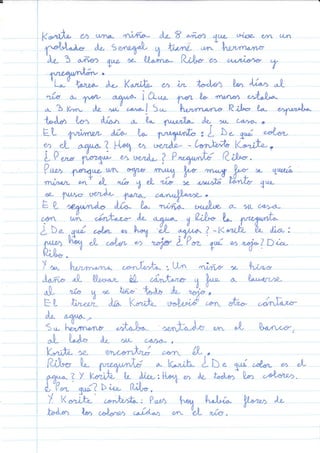 Karité es una niña de 8 años que vive en un
poblado de Senegal y tiene un hermano
de 3 años que se llama Ribo es curioso y
preguntón.
La tarea de Karité es ir todos los días al
río a por agua ¡Que por lo menos estaba
a 3 Km de su casa! Su hermano Ribo la esperaba
todos los días a la puerta de su casa.
El primer día la preguntó: ¿De qué color
es el agua? Hoy es verde - Contestó Karité.
¿Pero porque es verde? Preguntó Ribo.
Pues porque un ogro muy feo muy feo se quería
mirar en el río y el río se asustó tanto que
se puso verde para camuflarse.
El segundo día la niña vuelve a su casa
con un cántaro de agua y Ribo la pregunta
¿De qué color es hoy el agua? - Karité le dice:
pues hoy el color es rojo ¿Por qué es rojo? Dice
Ribo.
Y su hermana contesta: Un niño se hizo
daño al llevar el cántaro y fue a lavarse
al río y se tiñó todo de rojo.
El tercer día Karité volvió con otro cántaro
de agua.
Su hermano estaba sentado en el banco,
al lado de su casa.
Karité se encontró con él.
Ribo le preguntó a Karité ¿De qué color es el
agua? Y Karité le dice: Hoy es de todos los colores.
¿Por qué? Dice Ribo.
Y Karité contesta: Pues hoy había flores de
todos los colores caídas en el río.